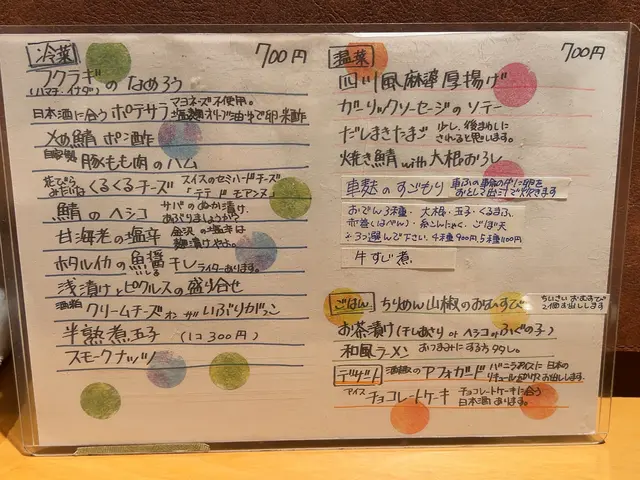 冷菜 700円
アクラギのなめろう
(ハマチ・イナダ)
日本酒に合うポテサラ マヨネーズ不使用。
塩麹オリーブ油・ゆで卵・米酢
〆め鯖 ポン酢
自家製 豚もも肉のハム
花びらみたいな くるくるチーズ スイスのセミハードチーズ
「テテ ド モアンヌ」
鯖のヘシコ サバのぬか漬け。
あぶりましょうか?
甘海老の塩辛 金沢の塩辛は
麹漬けやよ。
ホタルイカの魚醤干し ライターあります。
浅漬けとピクルスの盛り合せ
酒粕クリームチーズ いぶりがっこ
半熟煮玉子 (1コ300円)
スモークナッツ
温菜 700円
四川風麻婆厚揚げ
ガーリックソーセージのソテー
だしまきたまご 少し、後まわしに
されると思います。
焼き鯖with大根おろし
車麩のすごもり 車ふの真ん中に卵を
おとして出汁で炊きます
おでん3種・大根・玉子・くるまふ
赤巻(はべん)・糸こんにゃく・ごぼ天
2・3つ選んで下さい。4種900円、5種1100円
牛すじ煮
ごはん ちりめん山椒のおむすび ちいさいおむすび
2個お出しします
お茶漬け(干しあさり or ヘシコ or ふぐの子)
和風ラーメン おつまみにする方多し。
デザート 酒粕のアフォガード バニラアイスに日本の
リキュールをかけてお出しします。
アイス チョコレートケーキ チョコレートケーキに合う
日本酒あります。